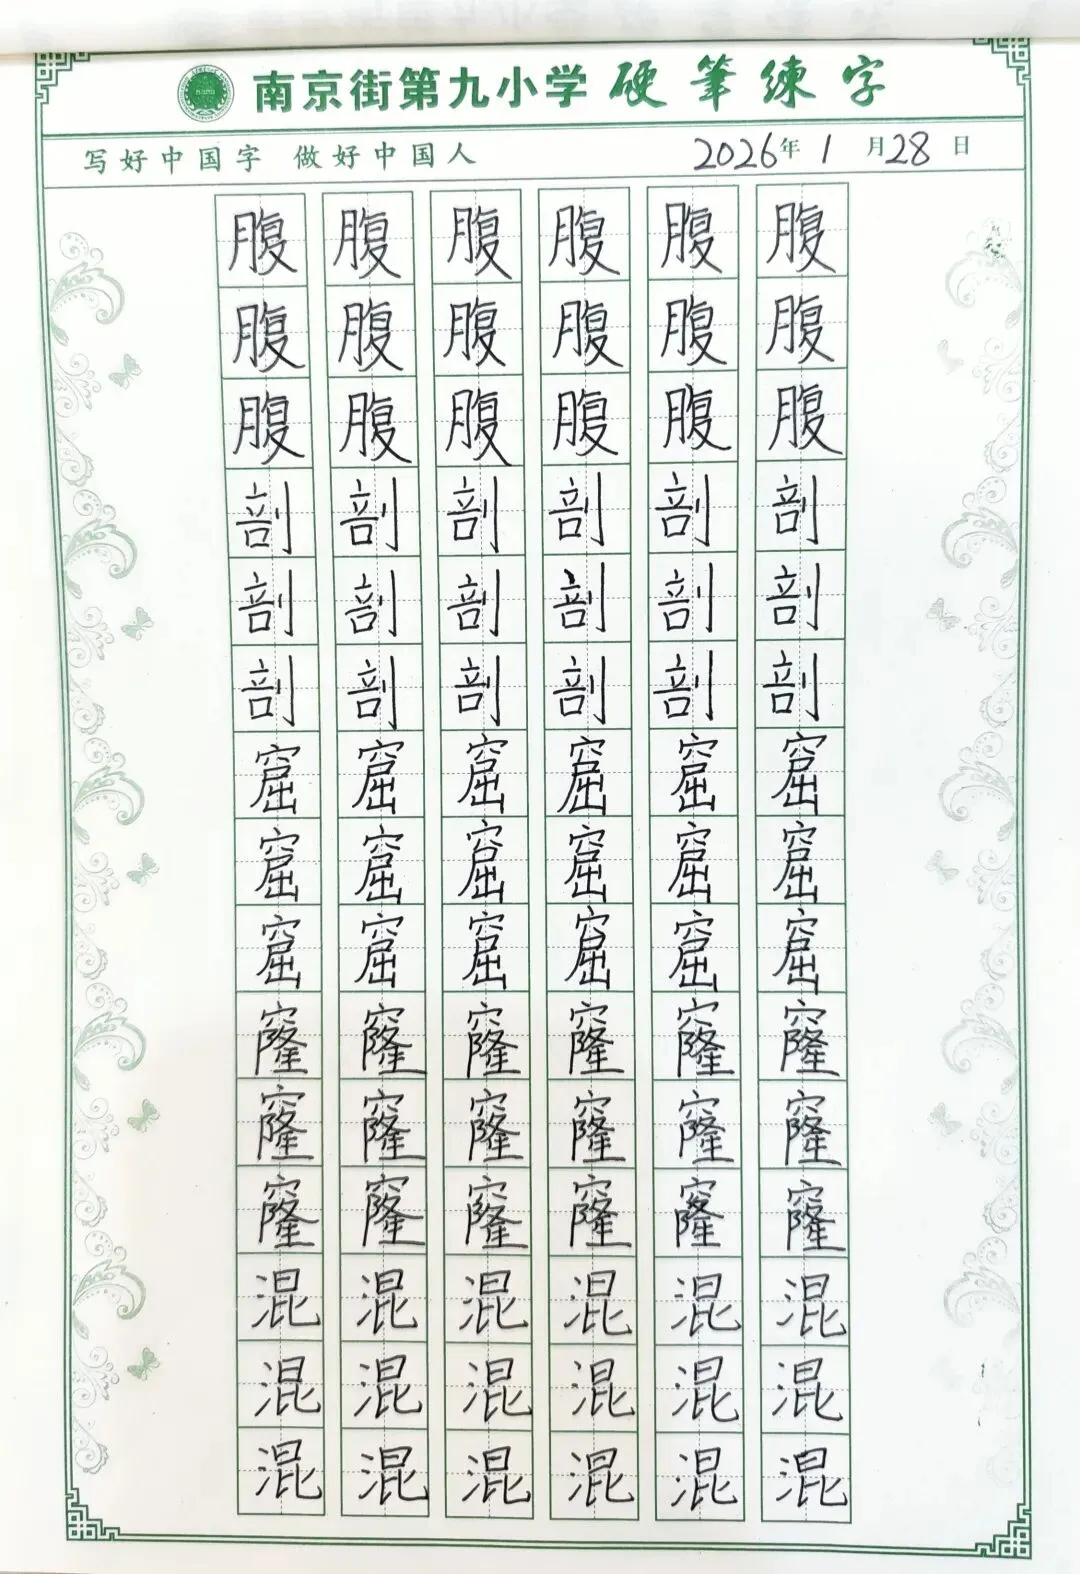 南京街第九小学 硬筆練字
写好中国字 做好中国人 2026年1月28日
腹 腹 腹 腹 腹 腹
腹 腹 腹 腹 腹 腹
腹 腹 腹 腹 腹 腹
剖 剖 剖 剖 剖 剖
剖 剖 剖 剖 剖 剖
剖 剖 剖 剖 剖 剖
窟 窟 窟 窟 窟 窟
窟 窟 窟 窟 窟 窟
窟 窟 窟 窟 窟 窟
窿 窿 窿 窿 窿 窿
窿 窿 窿 窿 窿 窿
窿 窿 窿 窿 窿 窿
混 混 混 混 混 混
混 混 混 混 混 混
混 混 混 混 混 混